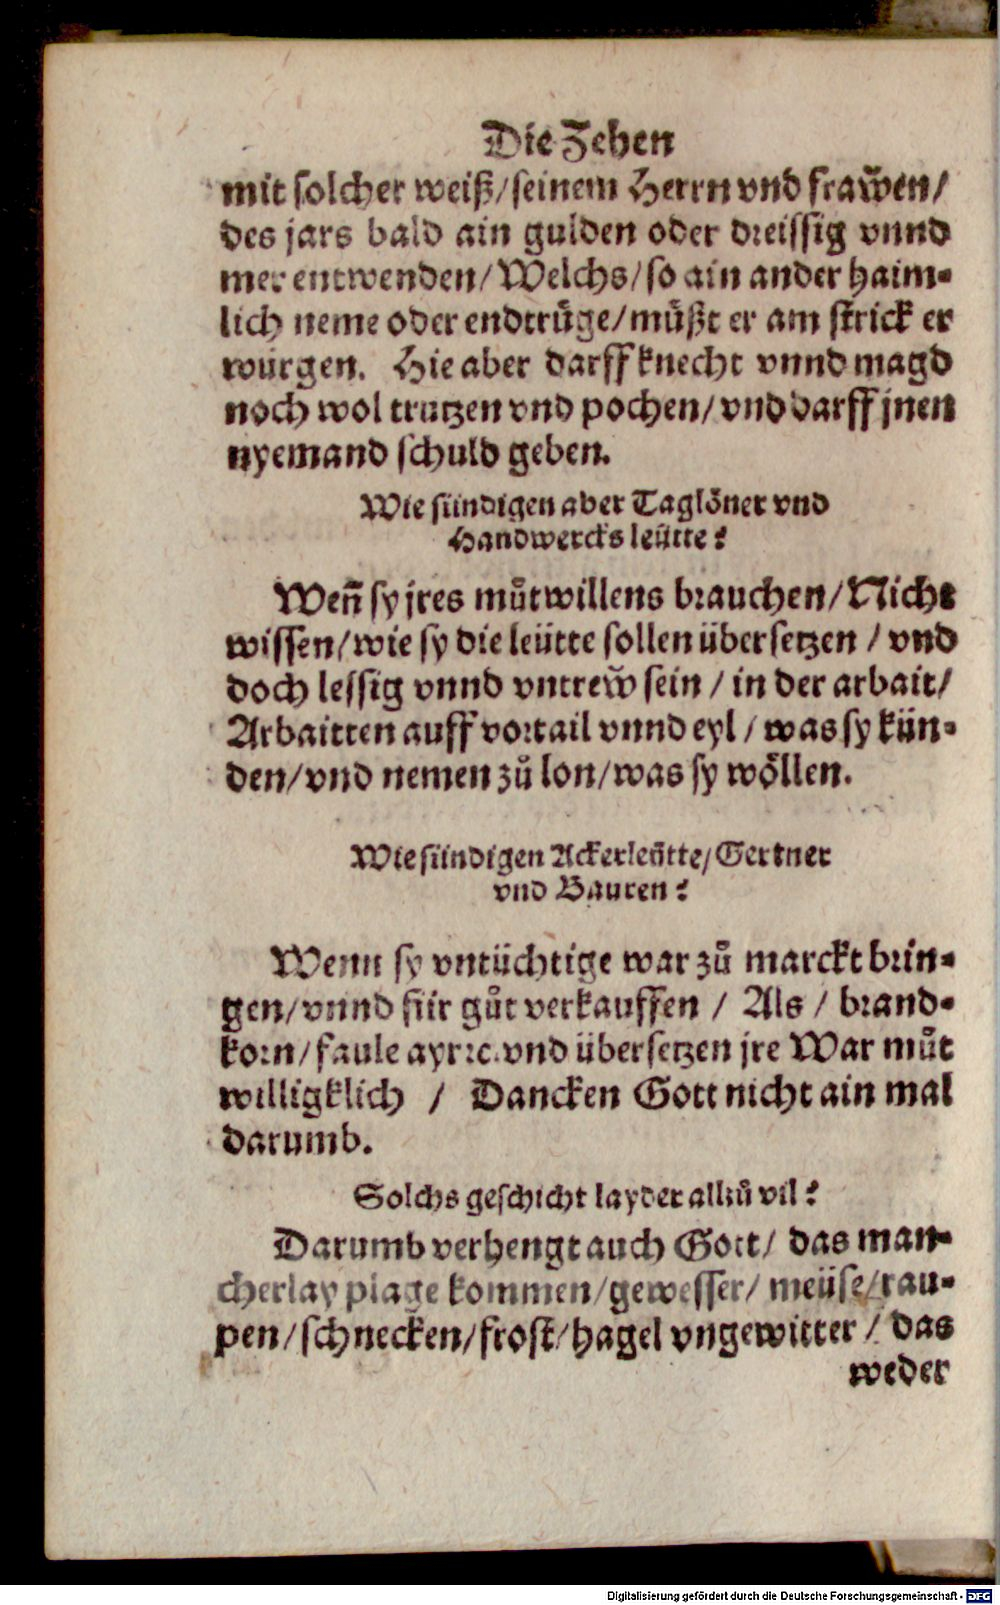 Die Zehen
mit solcher weiß/seinem Herrn vnd frawen/
des jars bald ain gulden oder dreissig vnnd
mer entwenden/Welchs/so ain ander haim-
lich neme oder endtrüge/müßt er am strick er
würgen. Hie aber darff knecht vnnd magd
noch wol trutzen vnd pochen/vnd darff jnen
nyemand schuld geben.
Wie sündigen aber Taglöner vnd
Handwercks leütte?
Weñ sy jres můtwillens brauchen/Nicht
wissen/wie sy die leütte sollen übersetzen / vnd
doch lessig vnnd vntrew sein / in der arbait/
Arbaitten auff vortail vnnd eyl / was sy kün-
den/vnd nemen zů lon/was sy wöllen.
Wie sündigen Ackerleütte/Gertner
vnd Bauren?
Wenn sy vntüchtige war zů marckt brin-
gen/vnnd für gůt verkauffen / Als / brand-
korn/faule ayr ꝛc. vnd übersetzen jre War můt
willigklich / Dancken Gott nicht ain mal
darumb.
Solchs geschicht layder allzů vil?
Darumb verhengt auch Gott/ das man-
cherlay plage kommen/gewesser/ meüse/rau-
pen/schnecken/frost/hagel vngewitter / das
weder
Digitalisierung gefördert durch die Deutsche Forschungsgemeinschaft - DFG